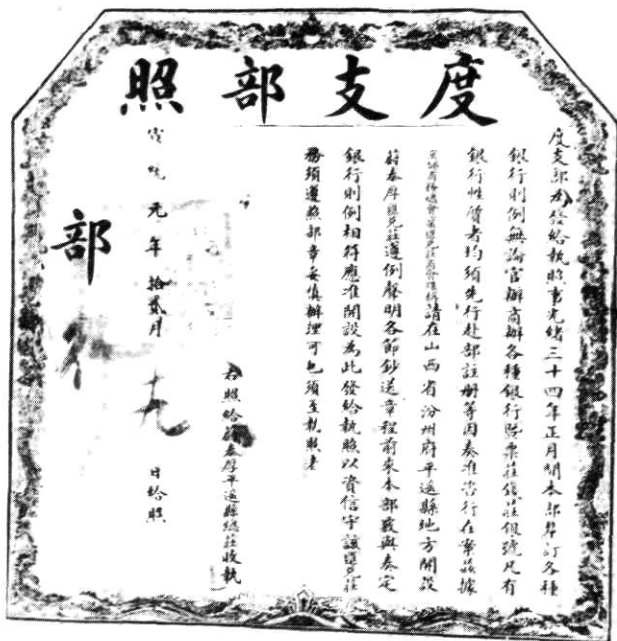 度支部照
度支部為發給執照事光緒三十四年正月間本部釐訂各種
銀行則例無論官辦商辦各種銀行暨票莊錢莊銀號凡有
銀行性質者均須先行赴部註册等因奏准咨行在案茲據
請在山西省汾州府平遥縣地方開設
蔚泰厚匯兌莊遵例聲明各節鈔送章程前來本部覈與奏定
銀行則例相符應准開設為此發給執照以資信守該匯兌莊
務須遵照部章妥慎辦理可也須至執照者
右照給蔚泰厚平遥縣總莊收執
宣統元年拾貳月 日給照
部行